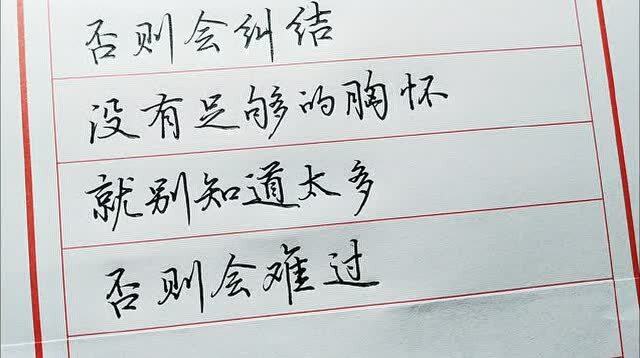 否则会纠结
没有足够的胸怀
就别知道太多
否则会难过